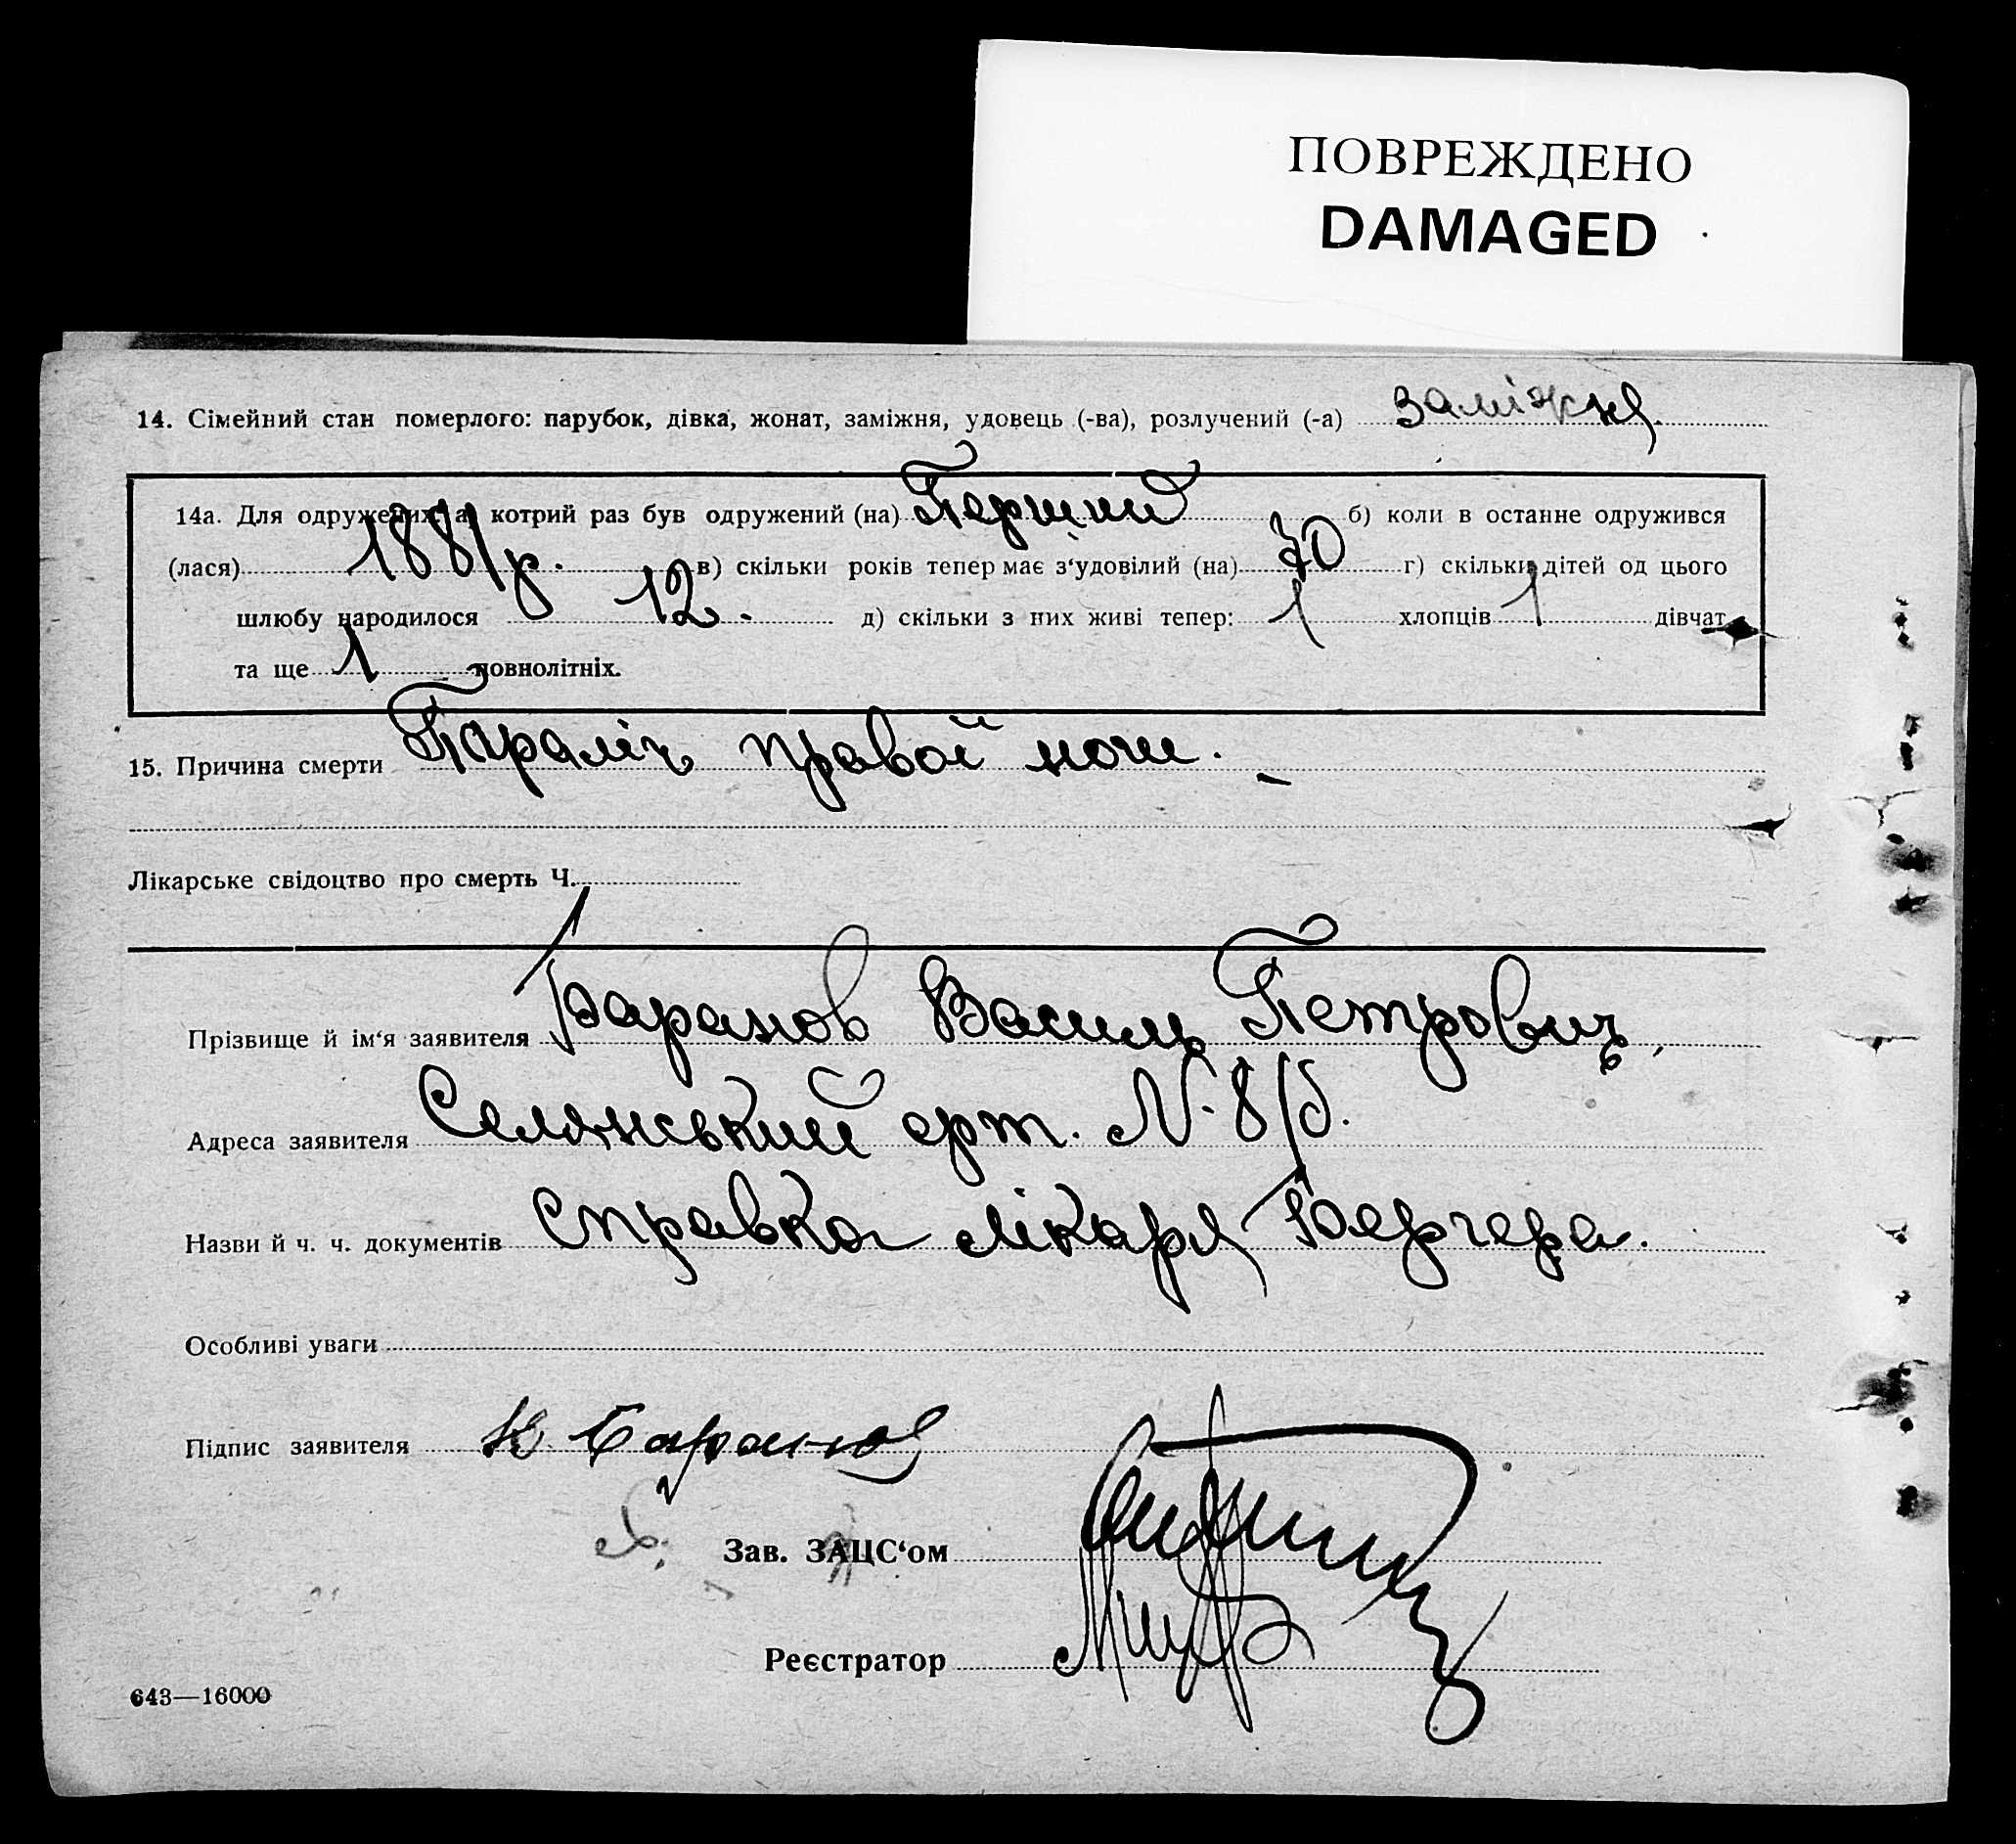 ПОВРЕЖДЕНО
DAMAGED
14. Сімейний стан померлого: парубок, дівка, жонат, заміжня, удовець (-ва), розлучений (-а) заміжня.
14а. Для одружених: а) котрий раз був одружений (на) Перший б) коли в останнє одружився
(лася) 1881 р. в) скільки років тепер має з'удовілий (на) 70 г) скільки дітей од цього
шлюбу народилося 12. д) скільки з них живі тепер: 1 хлопців 1 дівчат
та ще 1 повнолітніх.
15. Причина смерти Параліч правої ночи.
Лікарське свідоцтво про смерть Ч.
Прізвище й ім'я заявителя Баранов Василь Петрович,
Адреса заявителя Селянський № 8/б.
Назви й ч. ч. документів Справка лікаря Бергера.
Особливі уваги
Підпис заявителя Баранов
Зав. ЗАЦС'ом
Реєстратор
643—16000